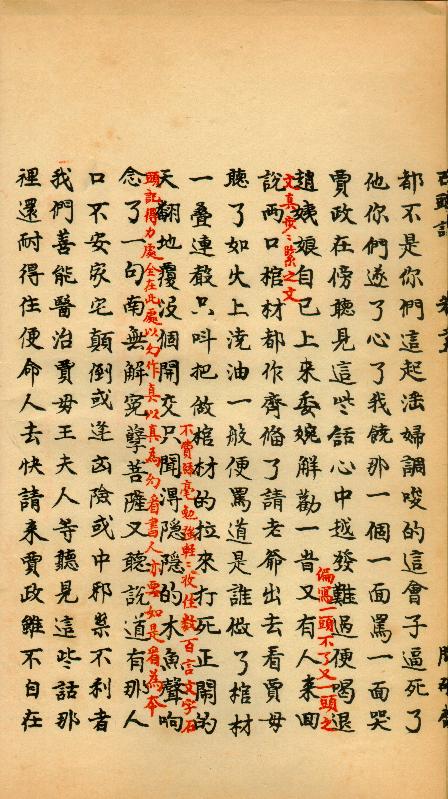 都不是你們這起滛婦調唆的這會子逼死了
他你們遂了心了我饒那一個一面罵一面哭
賈政在傍聽見這些話心中越發難過便喝退
趙姨娘自己上來委婉解勸一昔又有人來回
偏寫一頭不了又一頭之
文真步〻緊之文
說兩口棺材都作齊偹了請老爺出去看賈母
聽了如火上澆油一般便罵道是誰做了棺材
一疊連聲只呌把做棺材的拉來打死正鬧的
天翻地覆沒個開交只聞得隱隱的木魚聲响
不費絲毫勉強輕〻收住數百言文字石
頭記得力處全在此處以幻作真以真為幻看書人亦要如是看為本
念了一句南無解寃孽菩薩又聽說道有那人
口不安家宅顛倒或逢凶險或中邪祟不利者
我們善能醫治賈母王夫人等聽見這些話那
裡還耐得住便命人去快請來賈政雖不自在